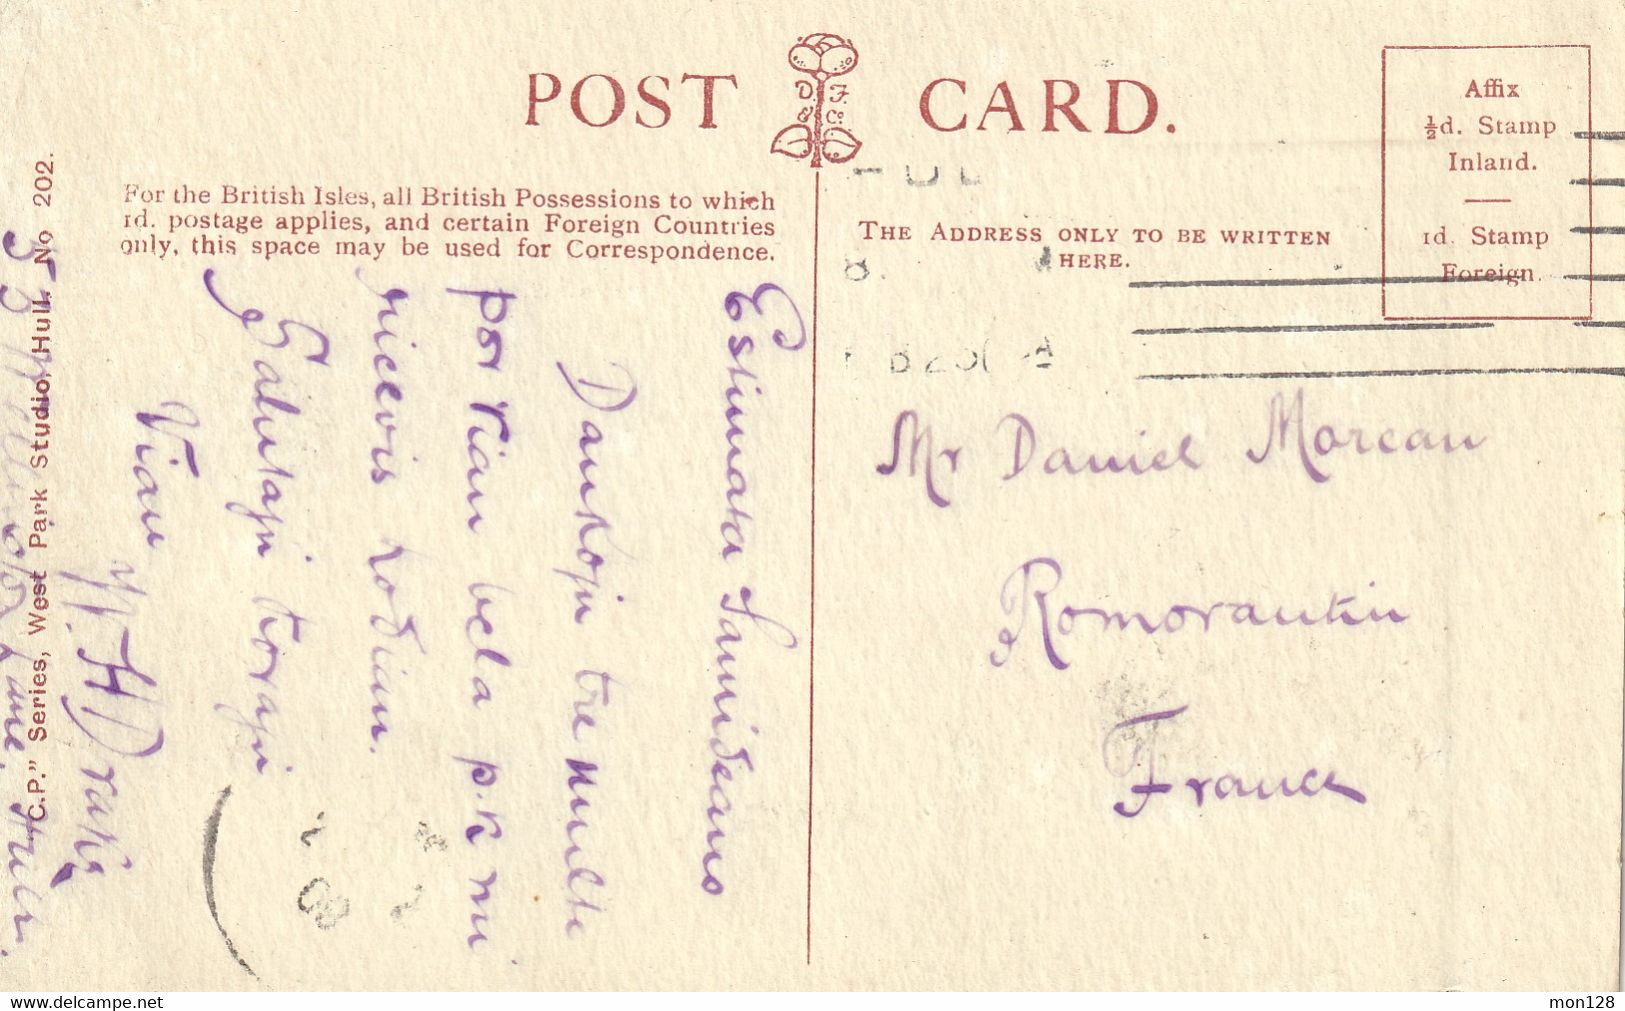 POST CARD.
D. F. & Co.
Affix
½d. Stamp
Inland.
1d. Stamp
Foreign.
For the British Isles, all British Possessions to which
1d. postage applies, and certain Foreign Countries
only, this space may be used for Correspondence.
THE ADDRESS ONLY TO BE WRITTEN
HERE.
Mr Daniel Moreau
Romorantin
France
Estimata Samideano
Dankojn tre multe
por vian bela p.k mi
ricevis hodiaŭ.
Salutajn korajn
Vian
W. H Drake
Lane, Hull.
C.P." Series, West Park Studio, Hull. No 202.
mon128